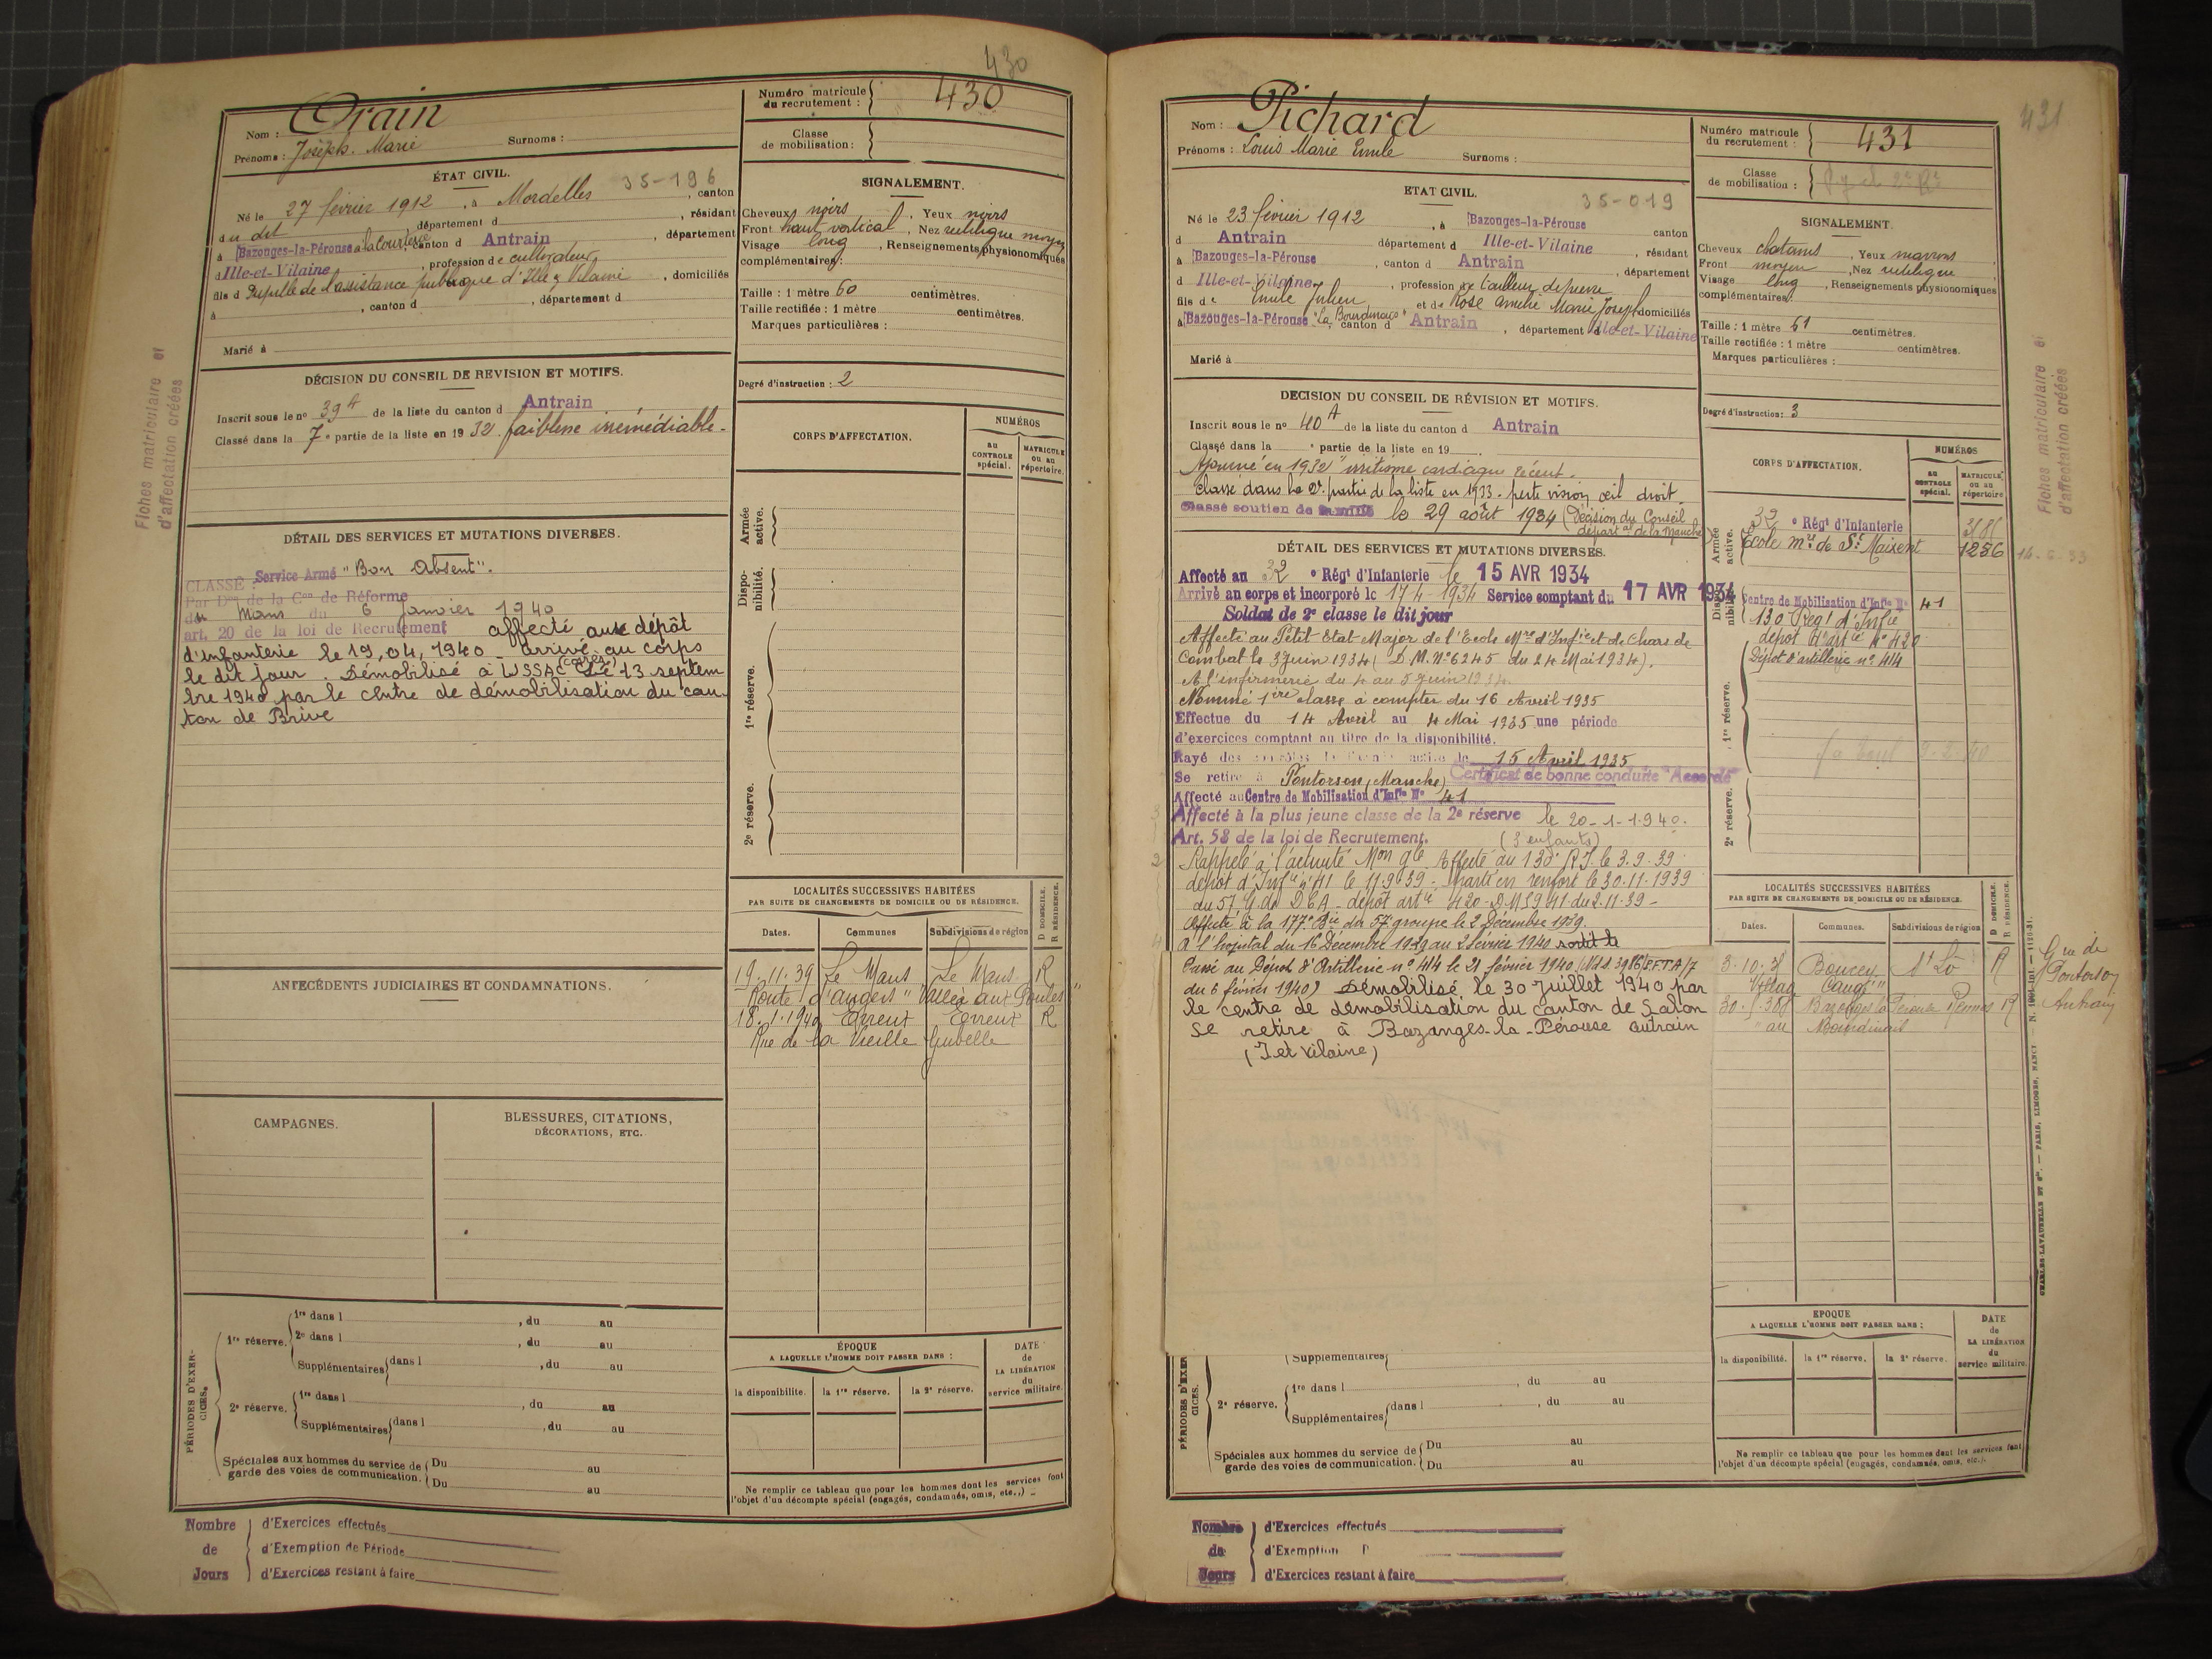 430
Nom : Orain
Prénoms : Joseph. Marie Surnoms :
Numéro matricule du recrutement : 430
Classe de mobilisation :
ÉTAT CIVIL.
35-196
Né le 27 février 1912, à Mordelles, canton
du dit, département d, résidant
à Bazouges-la-Pérouse, canton d Antrain, département
d Ille-et-Vilaine, profession de cultivateur
fils d Pupille de l'assistance publique d'Ille & Vilaine, domiciliés
à, canton d, département d
Marié à
SIGNALEMENT.
Cheveux noirs, Yeux noirs
Front haut vertical, Nez rectiligne moyen
Visage long, Renseignements physionomiques
complémentaires :
Taille : 1 mètre 60 centimètres.
Taille rectifiée : 1 mètre centimètres.
Marques particulières :
Degré d'instruction : 2
DÉCISION DU CONSEIL DE REVISION ET MOTIFS.
Inscrit sous le nº 39 A de la liste du canton d Antrain
Classé dans la 7e partie de la liste en 1932. faiblesse irrémédiable.
Fiches matriculaire et
d'affectation créées
CORPS D'AFFECTATION.
NUMÉROS
au CONTROLE spécial.
MATRICULE ou au répertoire.
Armée active.
Disponibilité.
1re réserve.
2e réserve.
DÉTAIL DES SERVICES ET MUTATIONS DIVERSES.
CLASSÉ Service Armé "Bon Absent".
Par Don de la Con de Réforme
du Mans du 6 Janvier 1940
art. 20 de la loi de Recrutement affecté aux dépôt
d'infanterie le 19,04,1940 - arrivé au corps
le dit jour. Démobilisé à USSAC (Corrèze) Le 13 septem
bre 1940 par le centre de démobilisation du can-
ton de Brive
LOCALITÉS SUCCESSIVES HABITÉES
PAR SUITE DE CHANGEMENTS DE DOMICILE OU DE RÉSIDENCE.
D DOMICILE. R RÉSIDENCE.
Dates. Communes Subdivisions de région
19.11.39 Le Mans Le Mans R
Route d'angers "Vallée aux Poules"
18.1.1940 Evreux Evreux R
Rue de la Vieille Gabelle
ANTÉCÉDENTS JUDICIAIRES ET CONDAMNATIONS.
CAMPAGNES.
BLESSURES, CITATIONS,
DÉCORATIONS, ETC.
PÉRIODES D'EXERCICES.
1re réserve. 1re dans l, du au
2e dans l, du au
Supplémentaires dans l, du au
2e réserve. 1re dans l, du au
Supplémentaires dans l, du au
Spéciales aux hommes du service de garde des voies de communication. Du au
Du au
ÉPOQUE
A LAQUELLE L'HOMME DOIT PASSER DANS :
la disponibilité. la 1re réserve. la 2e réserve.
DATE de LA LIBÉRATION du service militaire.
Ne remplir ce tableau que pour les hommes dont les services font
l'objet d'un décompte spécial (engagés, condamnés, omis, etc..)
Nombre de Jours
d'Exercices effectués
d'Exemption de Période
d'Exercices restant à faire
431
Nom : Pichard
Prénoms : Louis Marie Emile Surnoms :
Numéro matricule du recrutement : 431
Classe de mobilisation :
ETAT CIVIL.
35-019
Né le 23 février 1912, à Bazouges-la-Pérouse canton
d Antrain département d Ille-et-Vilaine résidant
à Bazouges-la-Pérouse, canton d Antrain, département
d Ille-et-Vilaine, profession de tailleur de pierre
fils de Emile Julien et de Rose Amélie Marie Joseph domiciliés
à Bazouges-la-Pérouse canton d Antrain, département d Ille-et-Vilaine
Marié à
SIGNALEMENT.
Cheveux chatains, Yeux marrons
Front moyen, Nez rectiligne
Visage long, Renseignements physionomiques
complémentaires.
Taille : 1 mètre 61 centimètres.
Taille rectifiée : 1 mètre centimètres.
Marques particulières :
Degré d'instruction : 3
DECISION DU CONSEIL DE RÉVISION ET MOTIFS.
Inscrit sous le nº 40 A de la liste du canton d Antrain
Classé dans la e partie de la liste en 19
Ajourné en 1932 "éréthisme cardiaque récent.
Classé dans la 2e partie de la liste en 1933. perte vision œil droit.
Classé soutien de famille le 29 août 1934 (Décision du Conseil
départal de la Manche)
Fiches matriculaire et
d'affectation créées
CORPS D'AFFECTATION.
NUMÉROS
au CONTROLE spécial.
MATRICULE ou au répertoire
Armée active.
32e Régt d'Infanterie
École mre de St Maixent 1256
Disponibilité
Centre de Mobilisation d'Infie Nº 41
130 Régt d'Infie
dépôt d'artie Nº 420
Dépôt d'artillerie nº 414
1re réserve.
2e réserve.
DÉTAIL DES SERVICES ET MUTATIONS DIVERSES.
Affecté au 32e Régt d'Infanterie le 15 AVR 1934
Arrivé au corps et incorporé le 17 4 1934 Service comptant du 17 AVR 1934
Soldat de 2e classe le dit jour
Affecté au Petit Etat-Major de l'Ecole Mre d'Infie et de Chars de
Combat le 3 Juin 1934 (D.M. Nº 6245 du 24 Mai 1934).
A l'infirmerie du 4 au 5 Juin 1934.
Nommé 1ère classe à compter du 16 Avril 1935
Effectue du 14 Avril au 4 Mai 1935 une période
d'exercices comptant au titre de la disponibilité.
Rayé des contrôles de l'armée active le 15 Avril 1935
Se retire à Pontorson (Manche) Certificat de bonne conduite "Accordé"
Affecté au Centre de Mobilisation d'Infie Nº 41
Affecté à la plus jeune classe de la 2e réserve le 20-1-1940.
Art. 58 de la loi de Recrutement. (3 enfants)
Rappelé à l'activité Mon gle Affecté au 130 R.I. le 3.9.39
dépôt d'Infie nº 41 le 11.9.39. Parti en renfort le 30.11.1939
au 57 G de D.C.A - dépôt artie 420 -
Affecté à la 177e Bie du 57e groupe le 2 Décembre 1939.
A l'hopital du 16 Décembre 1939 au 2 février 1940 sortit le
Passé au Dépôt d'Artillerie nº 414 le 21 février 1940
du 6 février 1940) Démobilisé le 30 juillet 1940 par
le centre de démobilisation du canton de Salon
se retire à Bazanges-la-Pérouse antrain
(I et Vilaine)
LOCALITÉS SUCCESSIVES HABITÉES
PAR SUITE DE CHANGEMENTS DE DOMICILE OU DE RÉSIDENCE.
D DOMICILE. R RÉSIDENCE.
Dates. Communes. Subdivisions de région
Boucey St Lô R
Rennes R
Gie de
Pontorson
Antrain
CHARLES-LAVAUZELLE ET Cie. — PARIS, LIMOGES, NANCY
PÉRIODES D'EXERCICES.
Supplémentaires
2e réserve. 1re dans l, du au
Supplémentaires dans l, du au
Spéciales aux hommes du service de garde des voies de communication. Du au
Du au
EPOQUE
A LAQUELLE L'HOMME DOIT PASSER DANS :
la disponibilité. la 1re réserve. la 2e réserve.
DATE de LA LIBÉRATION du service militaire.
Ne remplir ce tableau que pour les hommes dont les services font
l'objet d'un décompte spécial (engagés, condamnés, omis, etc.).
Nombre de Jours
d'Exercices effectués
d'Exemption
d'Exercices restant à faire